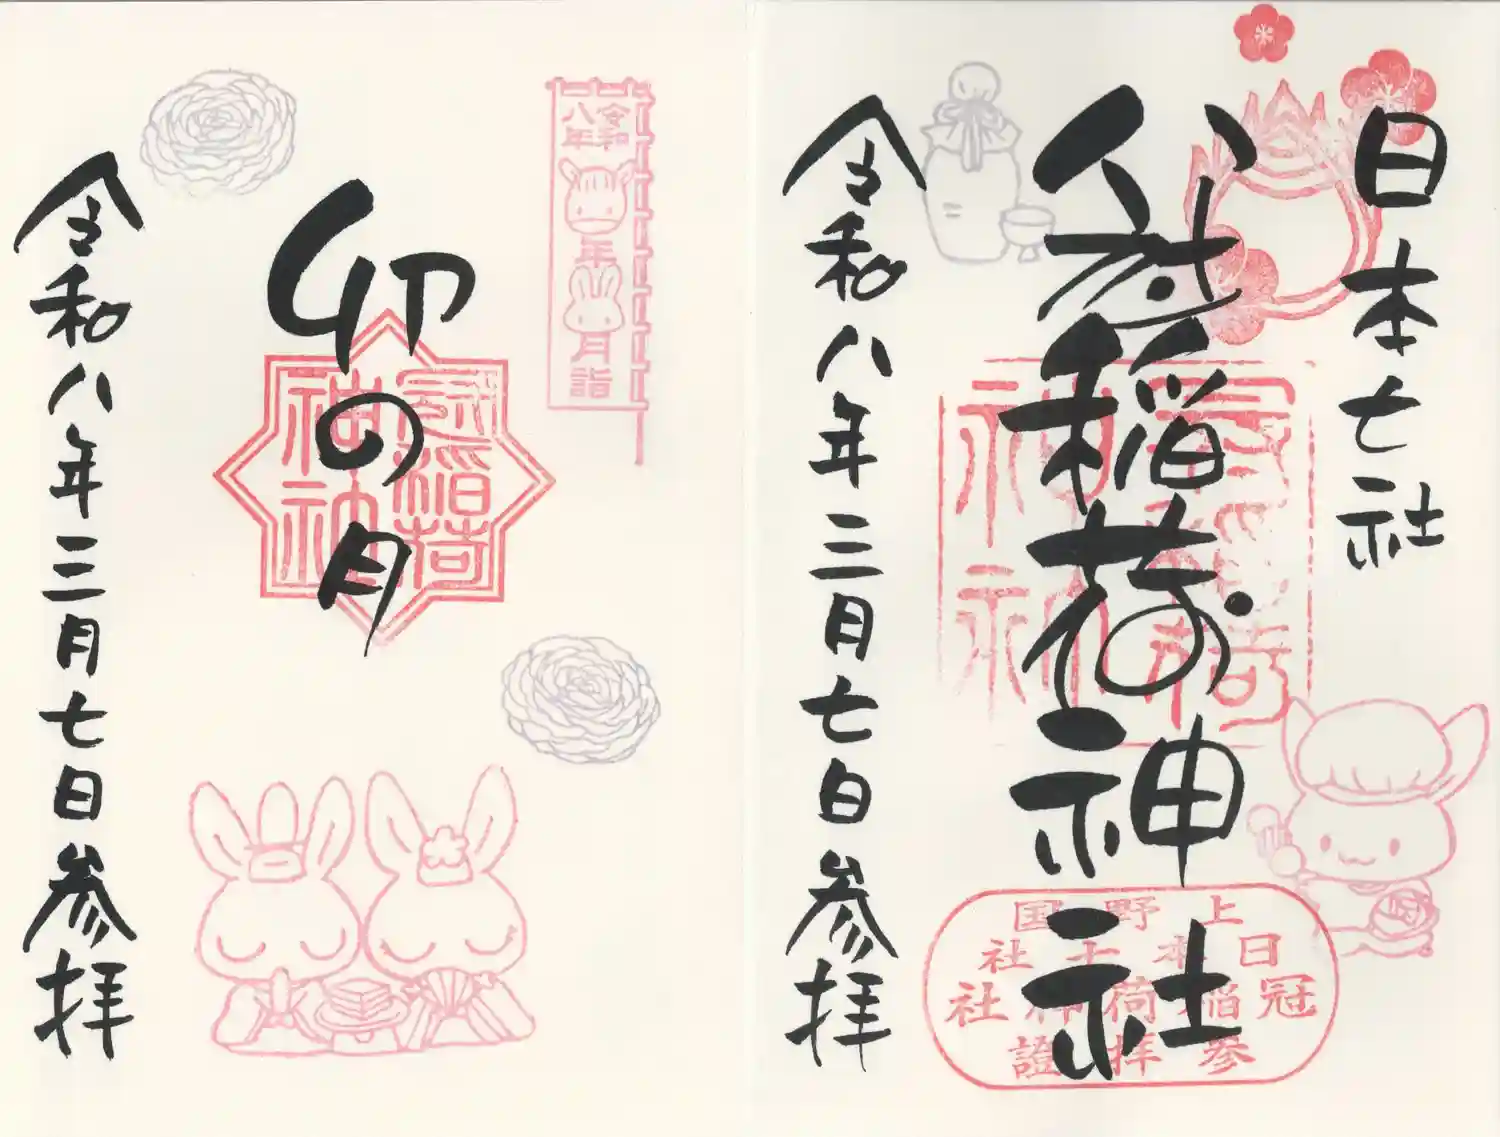 日本七社
冠稲荷神社
令和八年三月七日参拝
冠稲荷
神社
上野国
日本七社
冠稲荷神社
参拝證
令和
八年
年
月詣
卯の月
冠稲荷
神社
令和八年三月七日参拝